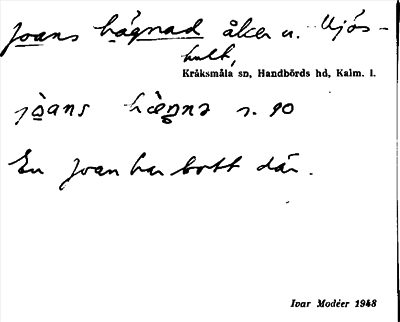 Joans hägnad åker u. Mjös-
hult,
Kråksmåla sn, Handbörds hd, Kalm. l.
s. 90
En Joan har bott där.
Ivar Modéer 1943